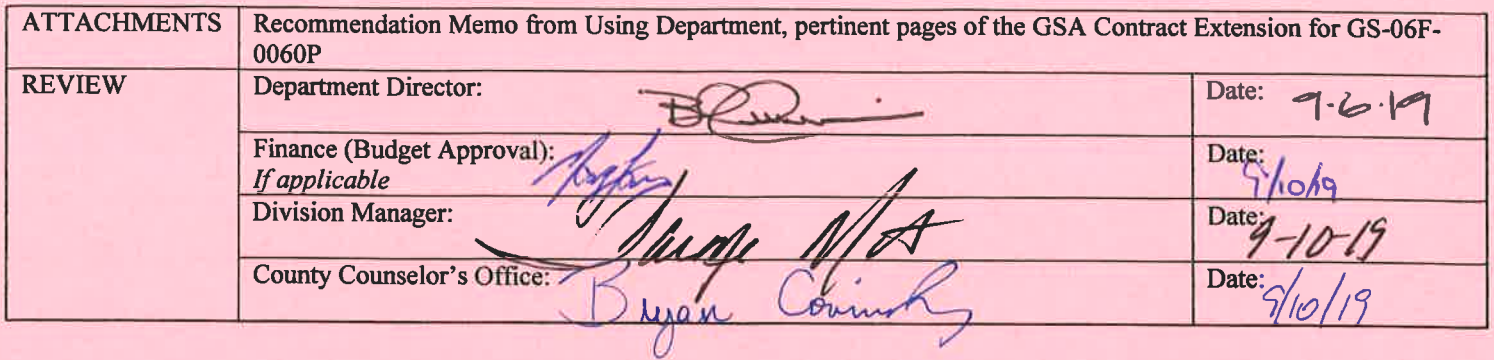 ATTACHMENTS Recommendation Memo from Using Department, pertinent pages of the GSA Contract Extension for GS-06F-
0060P
REVIEW Department Director: Date: 9-6-19
Finance (Budget Approval): Date: 9/10/19
If applicable
Division Manager: Date: 9-10-19
County Counselor's Office: Bryan Covinsky Date: 9/10/19